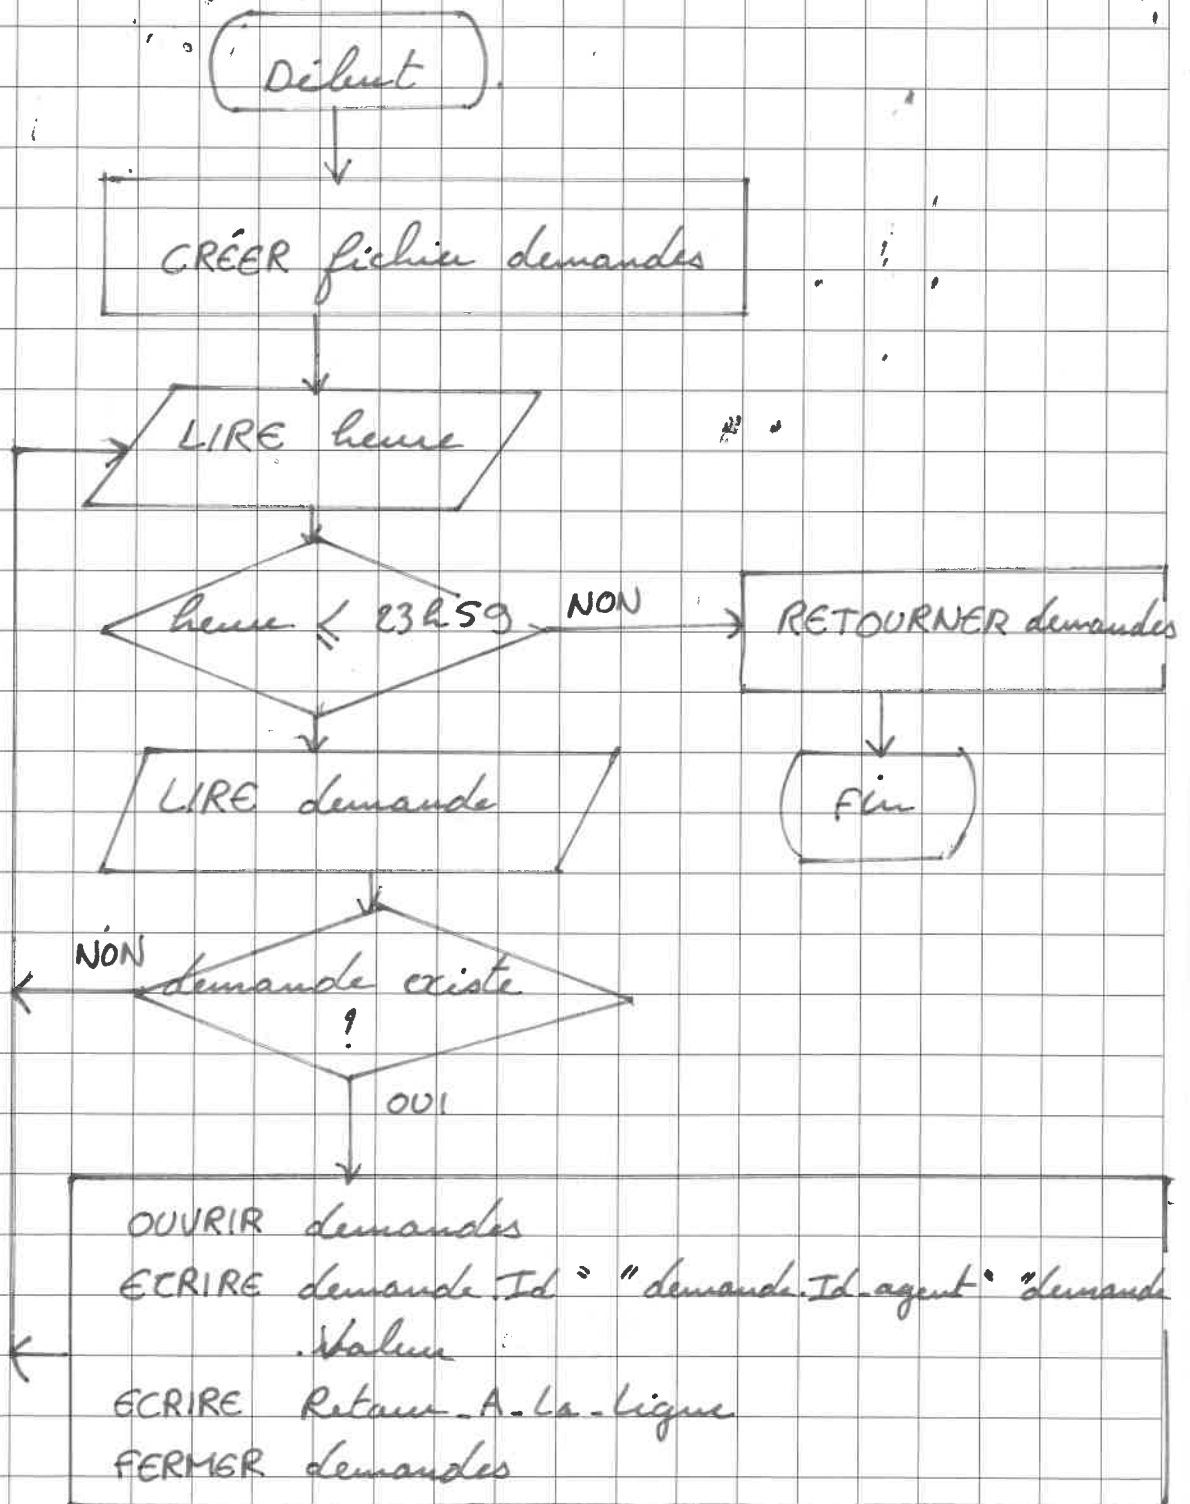 Début
CRÉER fichier demandes
LIRE heure
heure ≤ 23h59
NON
RETOURNER demandes
LIRE demande
Fin
NON
demande existe
?
OUI
OUVRIR demandes
ECRIRE demande.Id " " demande.Id_agent " " demande
.Valeur
ECRIRE Retour_A_La_Ligne
FERMER demandes